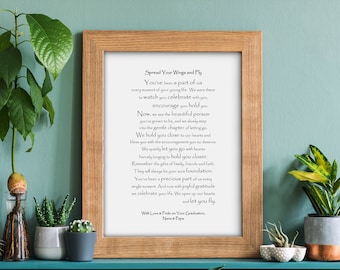 Spread Your Wings and Fly
You've been a part of us
every moment of your young life. We were there
to watch you, celebrate with you,
encourage you, hold you.
Now, we see the beautiful person
you've grown to be, and we slowly step
into the gentle chapter of letting go.
We hold you close to our hearts and
bless you with the encouragement you so deserve.
We quietly let you go with hearts
fiercely longing to hold you closer.
Remember the gifts of family, friends and faith.
They will always be your solid foundation.
You've been a precious part of us every
single moment. And now with joyful gratitude
we celebrate your life. We open up our hearts
and let you fly.
With Love & Pride on Your Graduation,
Nana & Papa